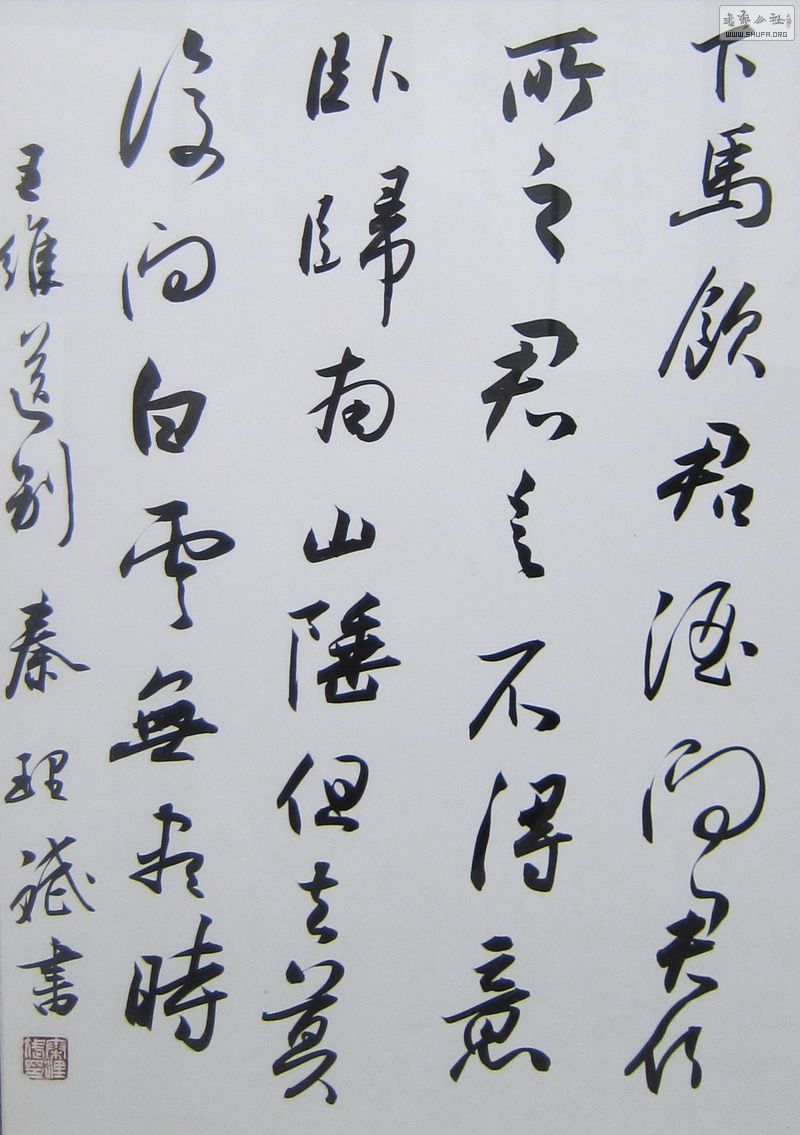 下馬飲君酒问君何
所之君言不得意
臥歸南山陲但去莫
復问白雲無盡時
王維送别 秦理斌書
書藝公社
WWW.SHUFA.ORG